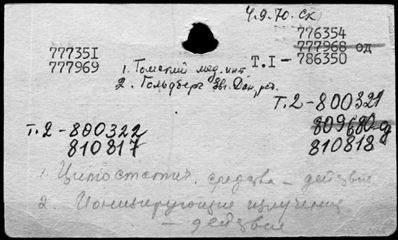 4.9.70. СК
776354
777968 од
77735I
777969
Т.I - 786350
1. Томский мед. инт
2. Гольдберг Ев. Дан, ред.
Т.2-800321
809680-д
810818
Т.2-800322
810817
1. Цитостатич. средства - действие
2. Ионизирующие излучения
- действие